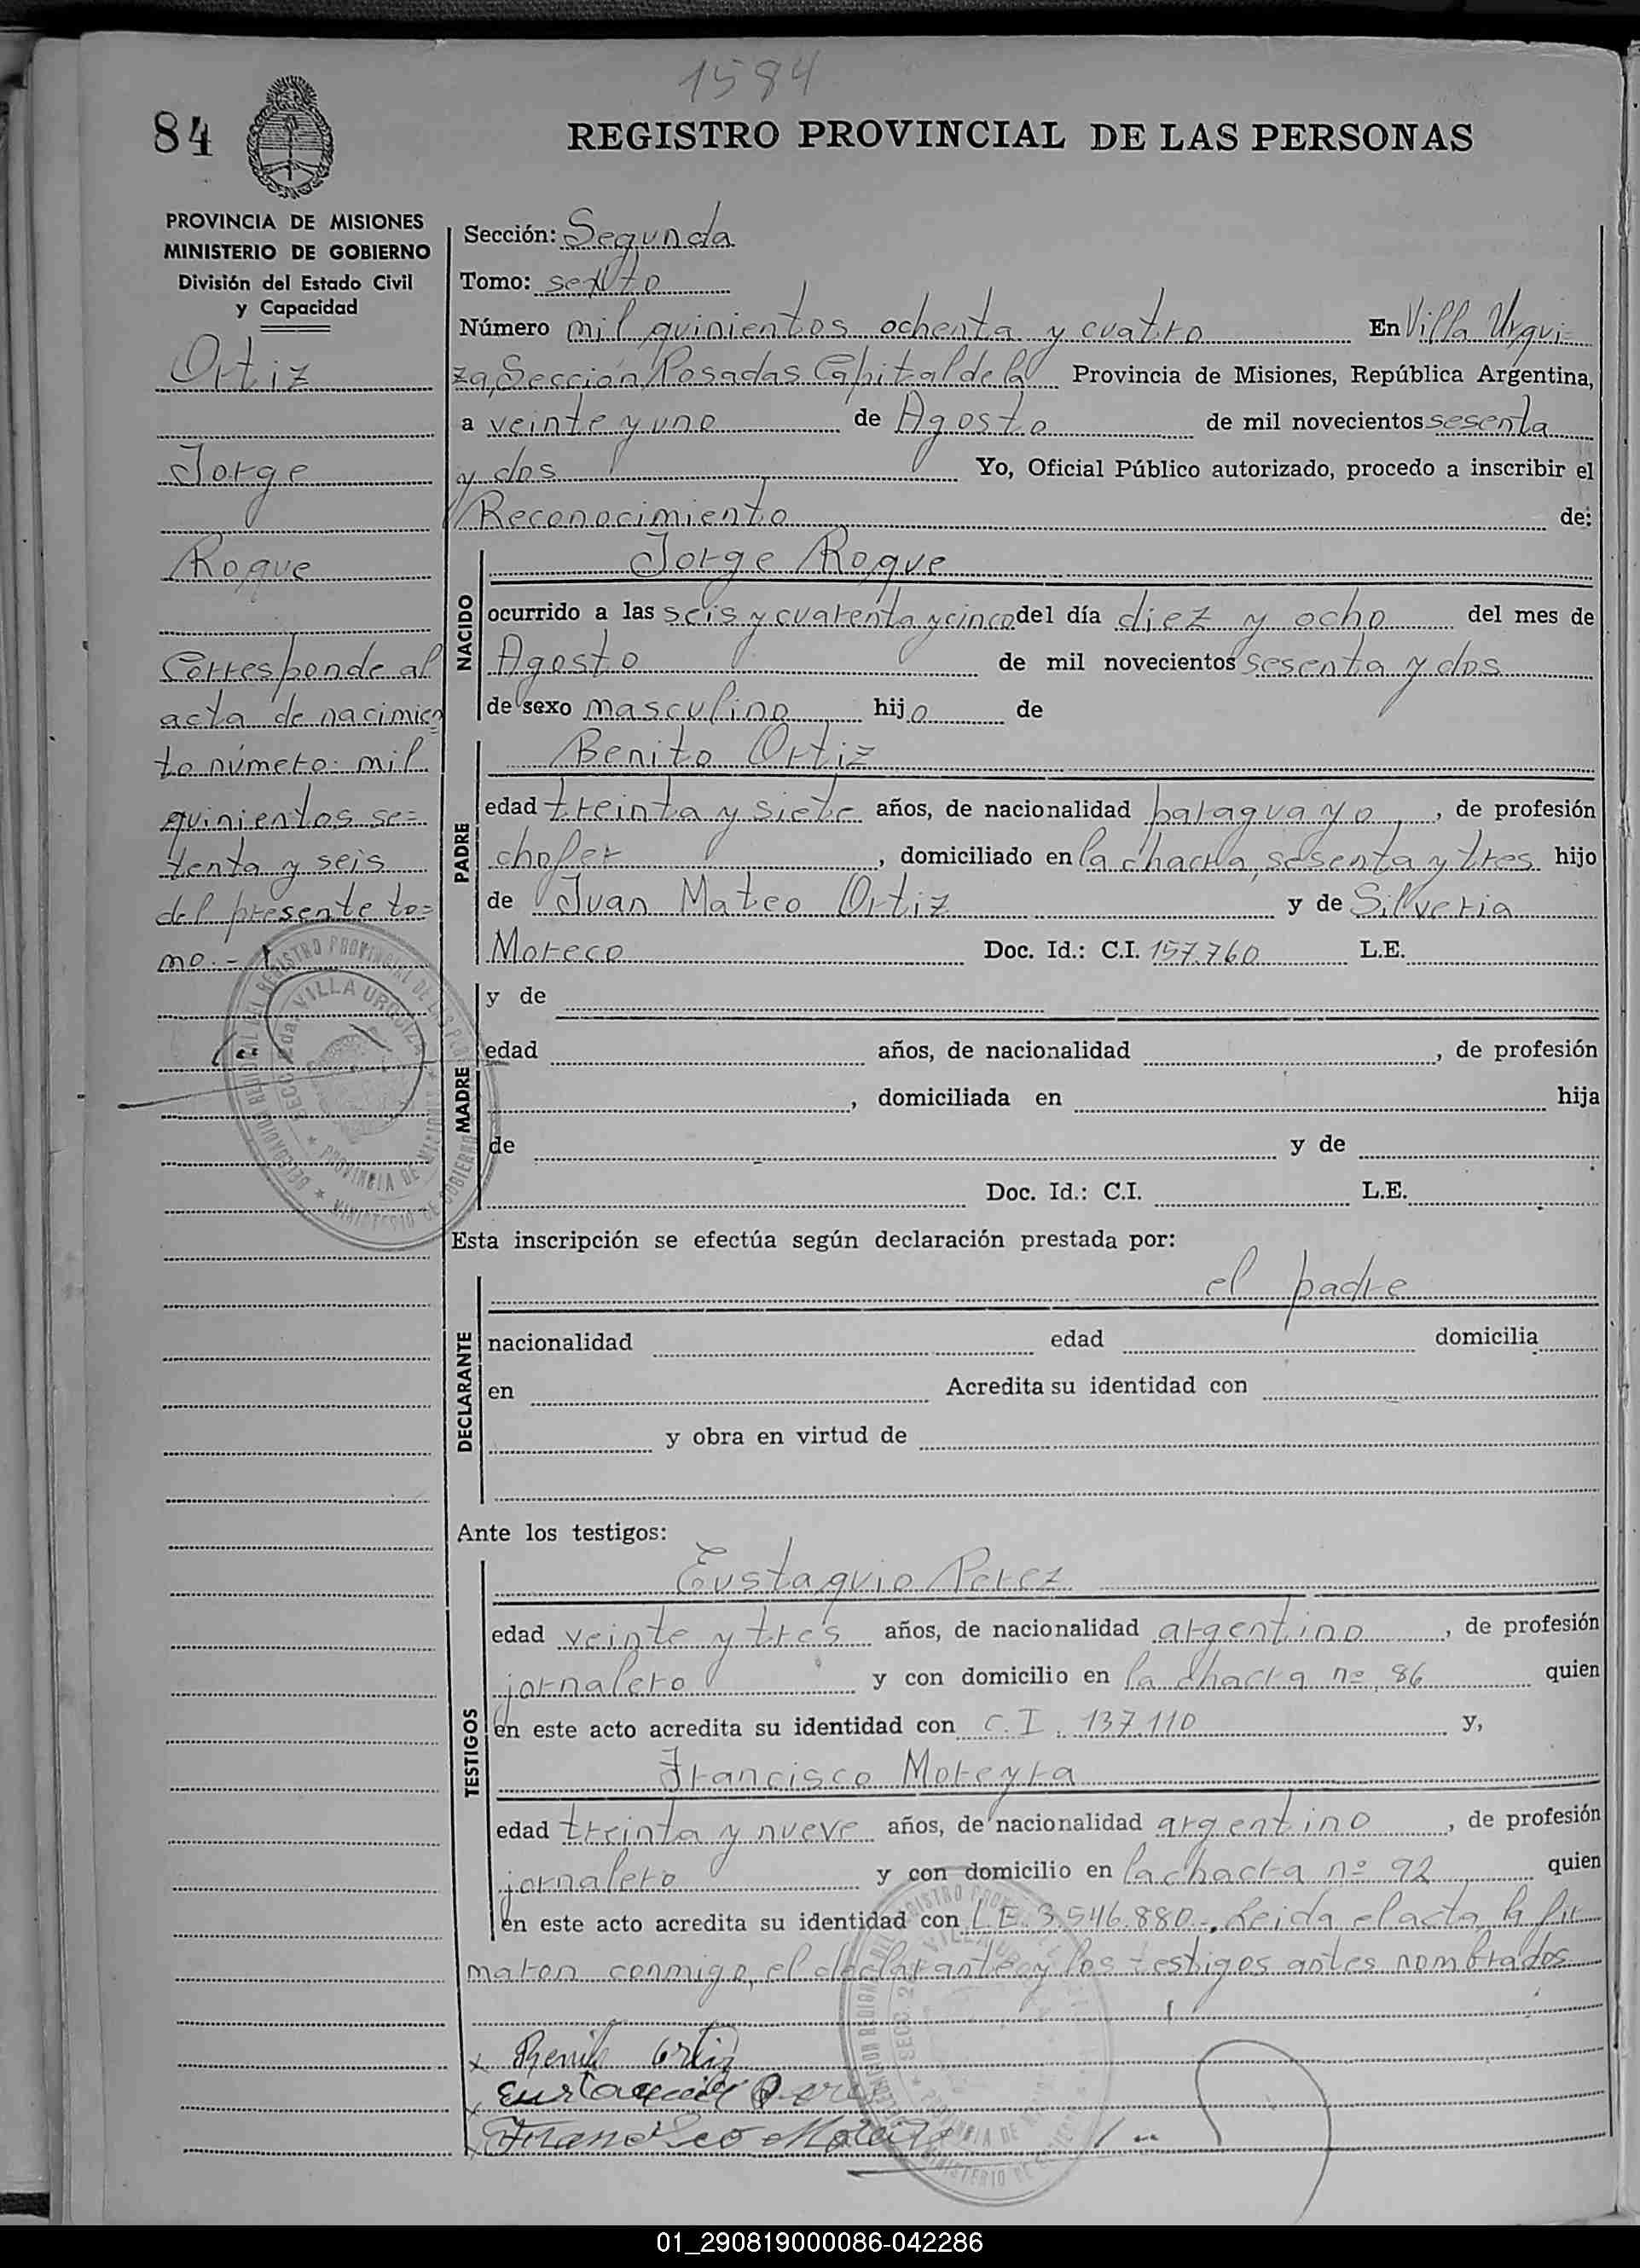 1584
84
REGISTRO PROVINCIAL DE LAS PERSONAS
PROVINCIA DE MISIONES
MINISTERIO DE GOBIERNO
División del Estado Civil
y Capacidad
Ortiz
Jorge
Roque
Corresponde al
acta de nacimien
to número: mil
quinientos se=
tenta y seis
del presente to=
mo.-
Sección: Segunda
Tomo: sexto
Número mil quinientos ochenta y cuatro En Villa Urqui=
za, Sección Posadas Capital de la Provincia de Misiones, República Argentina,
a veinte y uno de Agosto de mil novecientos sesenta
y dos Yo, Oficial Público autorizado, procedo a inscribir el
Reconocimiento de:
NACIDO
Jorge Roque
ocurrido a las seis y cuarenta y cinco del día diez y ocho del mes de
Agosto de mil novecientos sesenta y dos
de sexo masculino hijo de
PADRE
Benito Ortiz
edad treinta y siete años, de nacionalidad paraguayo, de profesión
chofer, domiciliado en la chacra, sesenta y tres hijo
de Juan Mateo Ortiz y de Silveria
Moreco Doc. Id.: C.I. 157.760 L.E.
MADRE
y de
edad años, de nacionalidad , de profesión
, domiciliada en hija
de y de
Doc. Id.: C.I. L.E.
Esta inscripción se efectúa según declaración prestada por:
DECLARANTE
el padre
nacionalidad edad domicilia
en Acredita su identidad con
y obra en virtud de
Ante los testigos:
TESTIGOS
Eustaquio Perez
edad veinte y tres años, de nacionalidad argentino, de profesión
jornalero y con domicilio en la chacra nº 86 quien
en este acto acredita su identidad con C.I. 137.110 y,
Francisco Moreyra
edad treinta y nueve años, de nacionalidad argentino, de profesión
jornalero y con domicilio en la chacra nº 92 quien
en este acto acredita su identidad con L.E. 3.546.880-. Leida el acta, la fir
maron conmigo, el declarante y los testigos antes nombrados
Benito Ortiz
Eustaquio Perez
Francisco Moreira
01_290819000086-042286